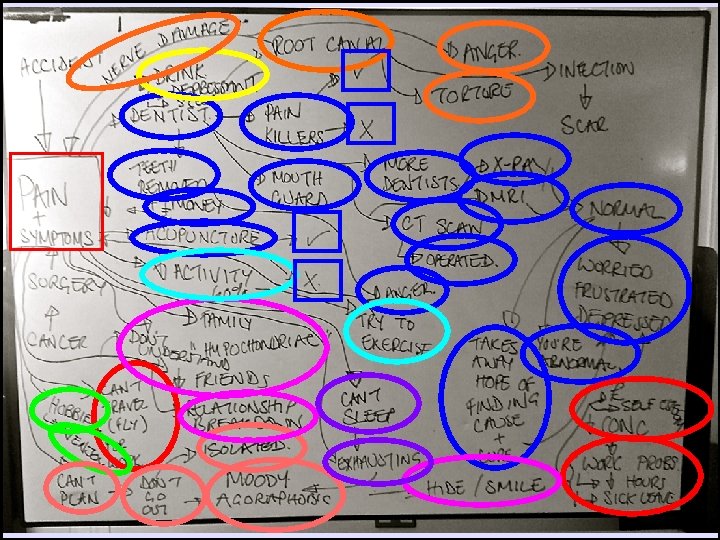 NERVE DAMAGE
ROOT CANAL
ANGER.
ACCIDENT
DRINK
DEPRESSANT
✓
INJECTION
TORTURE
DENTIST
PAIN
KILLERS
X
SCAR
TEETH
REMOVED
MOUTH
GUARD
MORE
DENTISTS
X-RAY
MRI
PAIN
+
SYMPTOMS
MONEY
NORMAL
CT SCAN
ACUPUNCTURE
✓
OPERATED.
SURGERY
ACTIVITY
X
ANGER.
WORRIED
FRUSTRATED
DEPRESSED
FAMILY
TRY TO
EXERCISE
CANCER
DON'T
UNDERSTAND
"HYPOCHONDRIAC"
FRIENDS
TAKES
AWAY
HOPE OF
FINDING
CAUSE
+
YOU'RE
ABNORMAL
HOBBIES
CAN'T
TRAVEL
(FLY)
RELATIONSHIP
BREAKDOWN
CAN'T
SLEEP
SELF ESTEEM
CONC
ISOLATED.
EXHAUSTING
WORK PROBS
HOURS
SICK LEAVE
CAN'T
PLAN
DON'T
GO
OUT
MOODY
AGORAPHOBIC
HIDE / SMILE